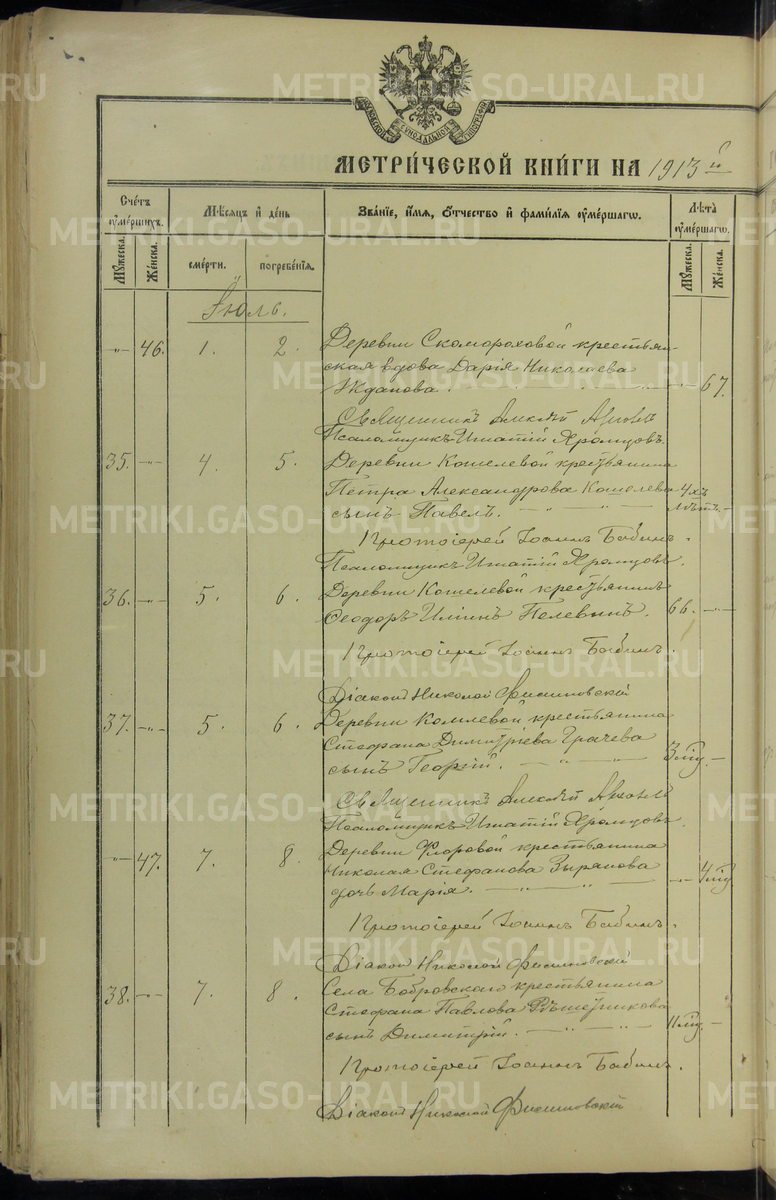 МЕТРИЧЕСКОЙ КНИГИ НА 1913 й
Счетъ умершихъ.
Мужеска.
Женска.
Мѣсяцъ и день
смерти.
погребенія.
Званіе, имя, отчество и фамилія умершаго.
Лѣта умершаго.
Мужеска.
Женска.
Іюль.
-„- 46. 1. 2. Деревни Скомороховой крестьян-
ская вдова Дарія Николаева
Жданова. -„- 67.
Священникъ
Псаломщикъ Игнатій Яромцовъ.
35. -„- 4. 5. Деревни Кошелевой крестьянина
Петра Александрова Кошелева 4хъ
сынъ Павелъ. -„- -„- лѣтъ. -
Протоіерей Іоаннъ Бабинъ.
Псаломщикъ Игнатій Яромцовъ.
36. -„- 5. 6. Деревни Кошелевой крестьянинъ
Ѳеодоръ Илiинъ Пелевинъ. 66. -„-
Протоіерей Іоаннъ Бабинъ.
Діаконъ Николай
37. -„- 5. 6. Деревни крестьянина
Стефана Димитріева Грачева
сынъ Георгій. -„- -„- 3 -
Священникъ
Псаломщикъ Игнатій Яромцовъ.
-„- 47. 7. 8. Деревни Фроровой крестьянина
Николая Стефанова Зырянова
дочь Марія. -„- -„- -„- 4
Протоіерей Іоаннъ Бабинъ.
Діаконъ Николай
38. -„- 7. 8. Села Бобровскаго крестьянина
Стефана Павлова Рѣшетникова
сынъ Димитрій. -„- -„- 11 -
Протоіерей Іоаннъ Бабинъ.
Діаконъ Николай
METRIKI.GASO-URAL.RU